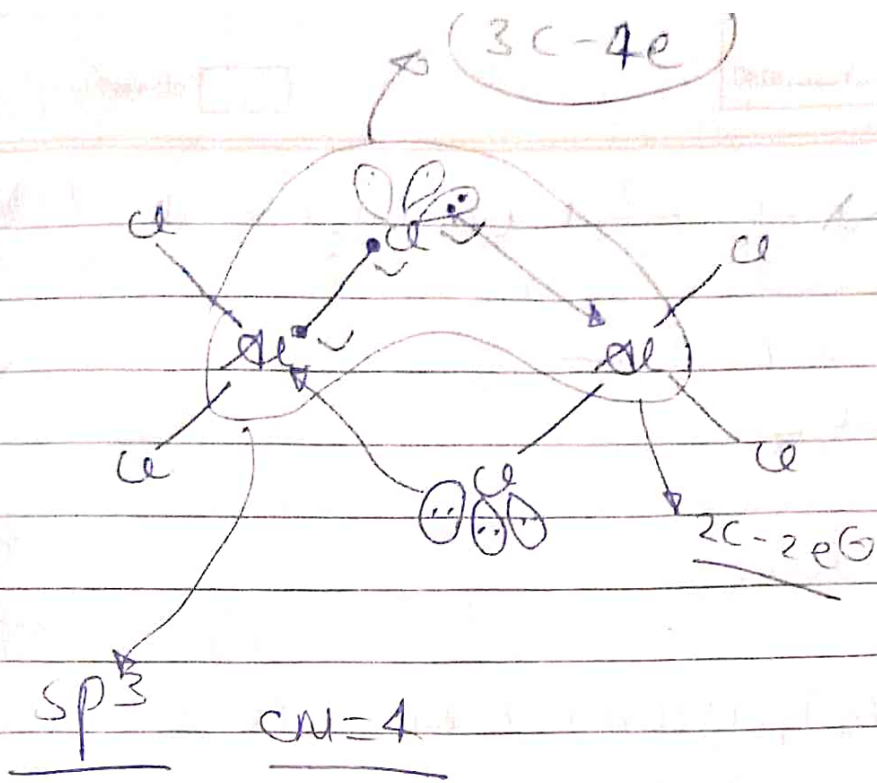 3c-4e
Cl Cl Cl
Al Al
Cl Cl Cl
2c-2e⊖
sp3 CN=4